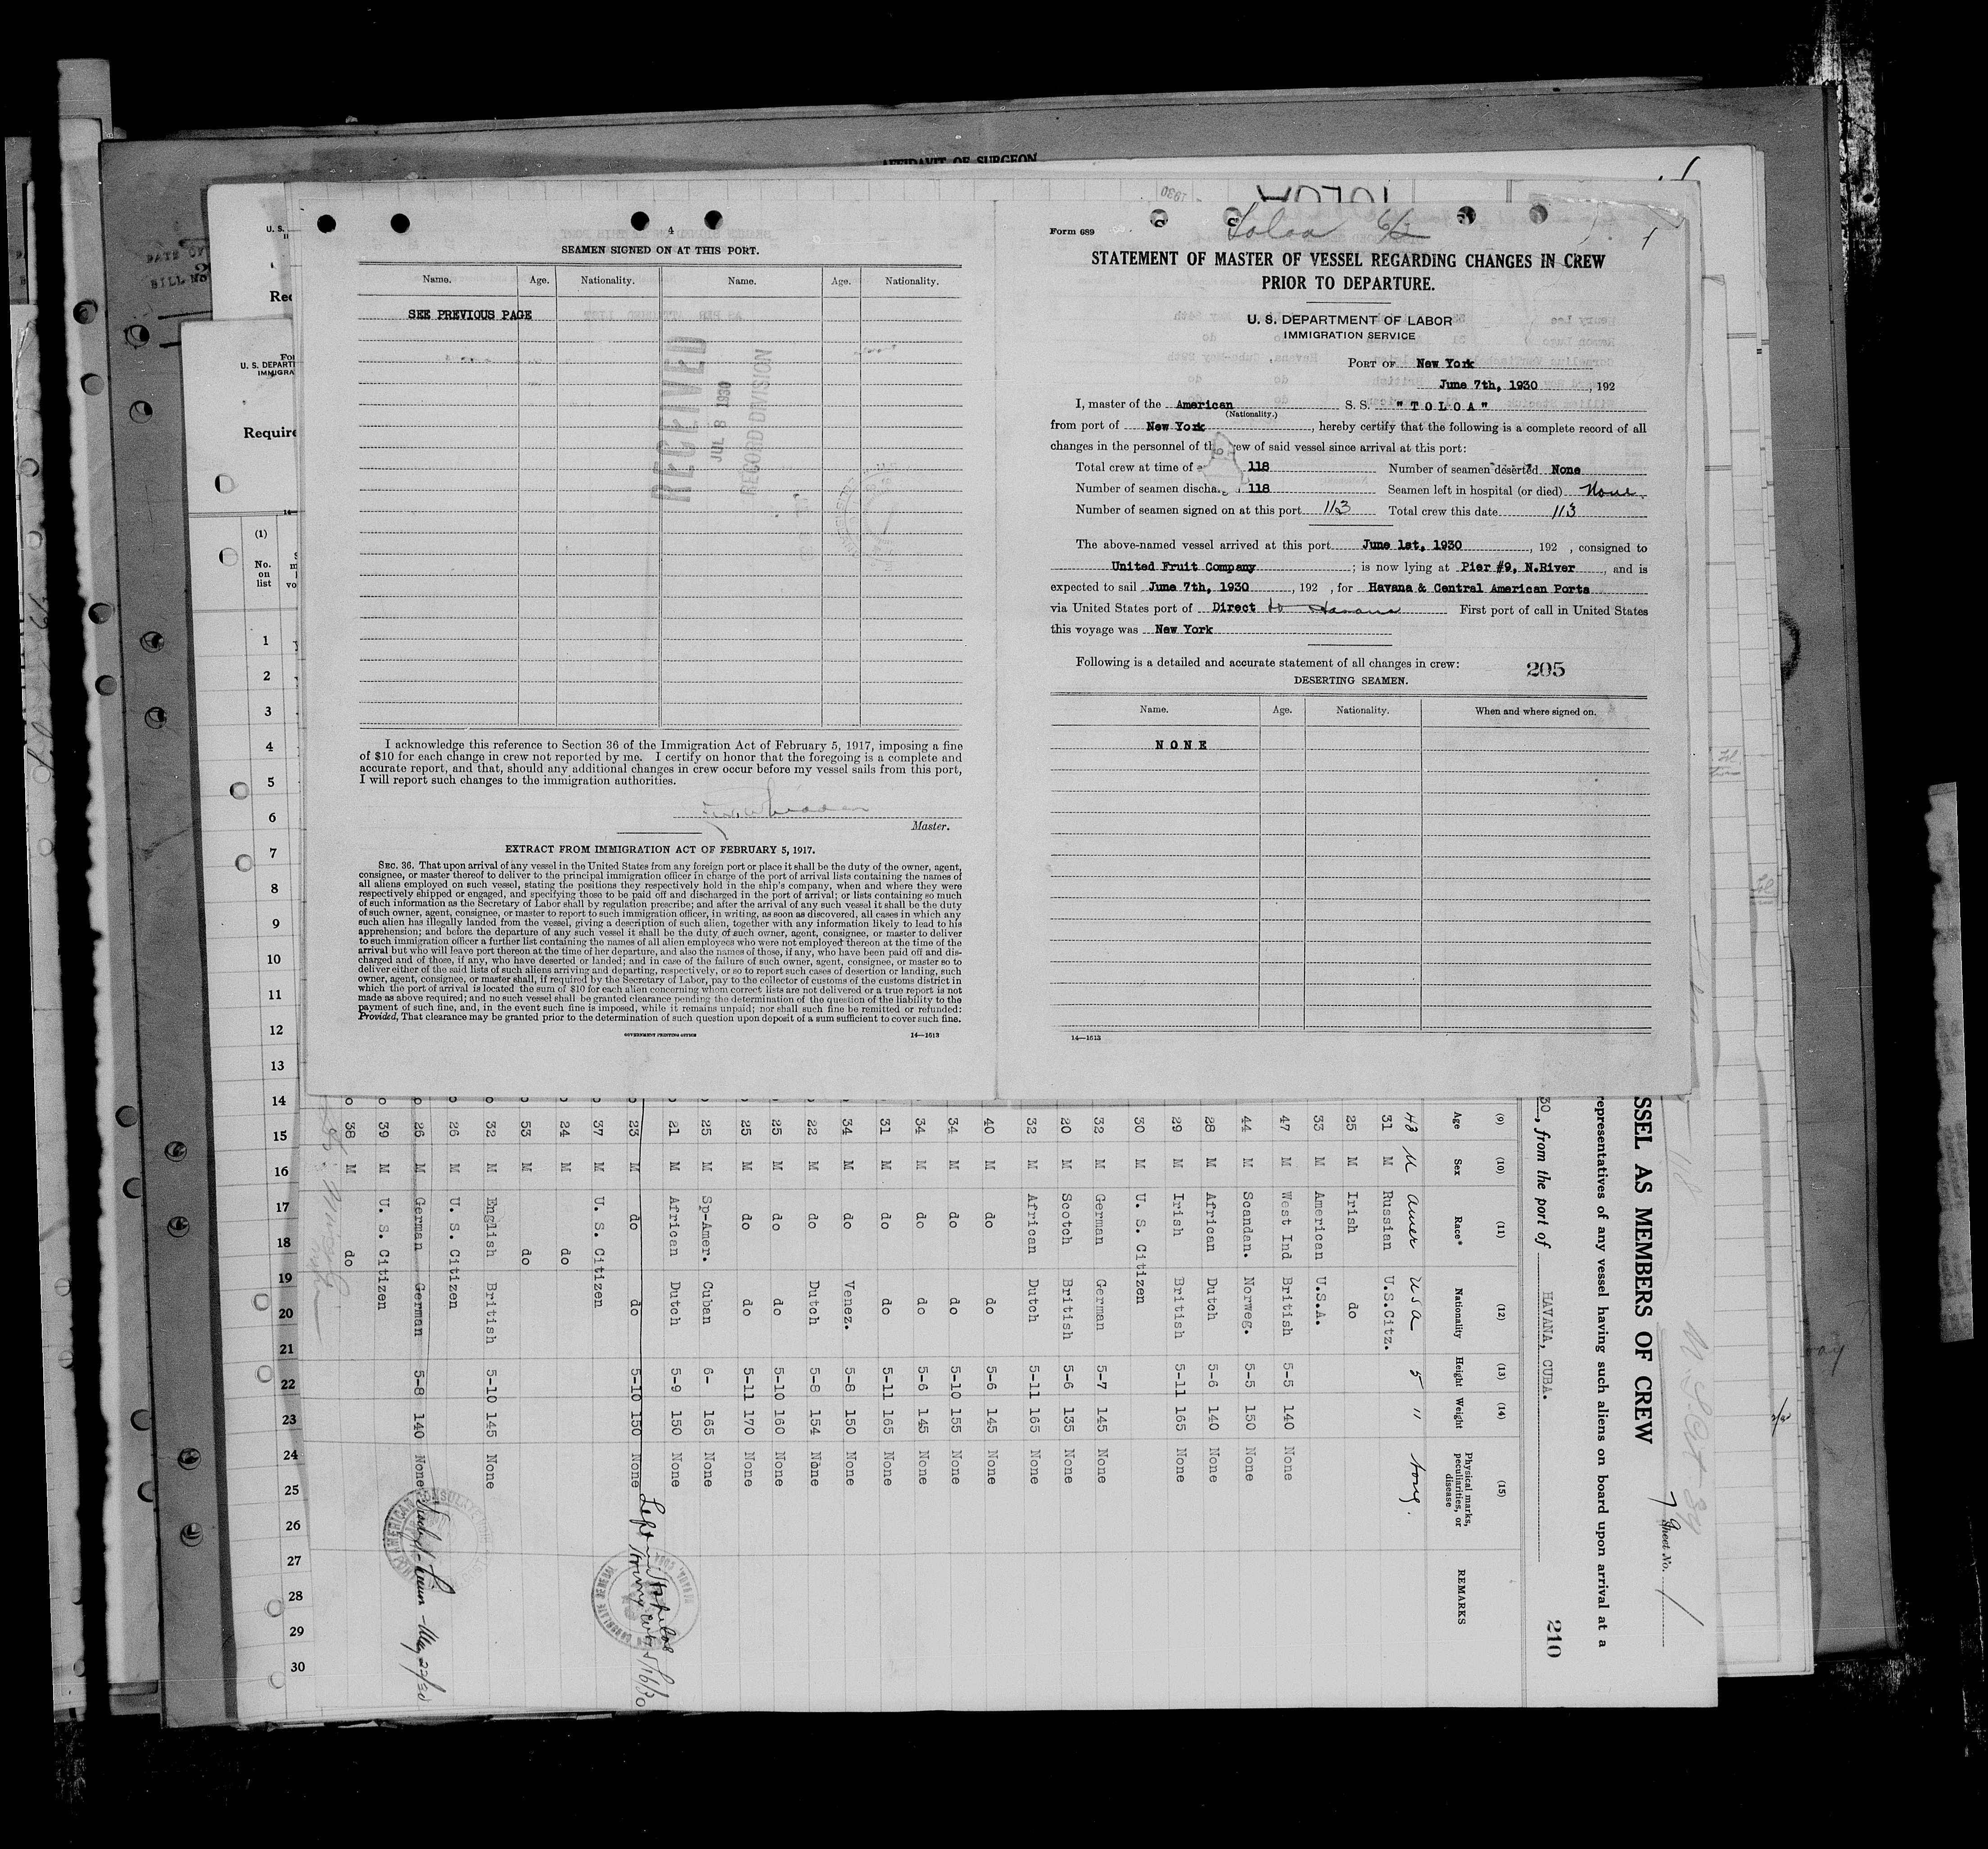 AFFIDAVIT OF SURGEON
4
SEAMEN SIGNED ON AT THIS PORT.
Name. Age. Nationality. Name. Age. Nationality.
SEE PREVIOUS PAGE
RECEIVED
JUL 8 1930
RECORD DIVISION
I acknowledge this reference to Section 36 of the Immigration Act of February 5, 1917, imposing a fine
of $10 for each change in crew not reported by me. I certify on honor that the foregoing is a complete and
accurate report, and that, should any additional changes in crew occur before my vessel sails from this port,
I will report such changes to the immigration authorities.
Master.
EXTRACT FROM IMMIGRATION ACT OF FEBRUARY 5, 1917.
SEC. 36. That upon arrival of any vessel in the United States from any foreign port or place it shall be the duty of the owner, agent,
consignee, or master thereof to deliver to the principal immigration officer in charge of the port of arrival lists containing the names of
all aliens employed on such vessel, stating the positions they respectively hold in the ship's company, when and where they were
respectively shipped or engaged, and specifying those to be paid off and discharged in the port of arrival; or lists containing so much
of such information as the Secretary of Labor shall by regulation prescribe; and after the arrival of any such vessel it shall be the duty
of such owner, agent, consignee, or master to report to such immigration officer, in writing, as soon as discovered, all cases in which any
such alien has illegally landed from the vessel, giving a description of such alien, together with any information likely to lead to his
apprehension; and before the departure of any such vessel it shall be the duty of such owner, agent, consignee, or master to deliver
to such immigration officer a further list containing the names of all alien employees who were not employed thereon at the time of the
arrival but who will leave port thereon at the time of her departure, and also the names of those, if any, who have been paid off and dis-
charged and of those, if any, who have deserted or landed; and in case of the failure of such owner, agent, consignee, or master so to
deliver either of the said lists of such aliens arriving and departing, respectively, or so to report such cases of desertion or landing, such
owner, agent, consignee, or master shall, if required by the Secretary of Labor, pay to the collector of customs of the customs district in
which the port of arrival is located the sum of $10 for each alien concerning whom correct lists are not delivered or a true report is not
made as above required; and no such vessel shall be granted clearance pending the determination of the question of the liability to the
payment of such fine, and, in the event such fine is imposed, while it remains unpaid; nor shall such fine be remitted or refunded:
Provided, That clearance may be granted prior to the determination of such question upon deposit of a sum sufficient to cover such fine.
GOVERNMENT PRINTING OFFICE 14—1613
Toloa 6/3
Form 689
STATEMENT OF MASTER OF VESSEL REGARDING CHANGES IN CREW
PRIOR TO DEPARTURE.
U. S. DEPARTMENT OF LABOR
IMMIGRATION SERVICE
PORT OF New York
June 7th, 1930, 192
I, master of the American S. S. "TOLOA"
(Nationality.)
from port of New York, hereby certify that the following is a complete record of all
changes in the personnel of the crew of said vessel since arrival at this port:
Total crew at time of 118 Number of seamen deserted None
Number of seamen discha 118 Seamen left in hospital (or died) None
Number of seamen signed on at this port 113 Total crew this date 113
The above-named vessel arrived at this port June 1st, 1930, 192 , consigned to
United Fruit Company; is now lying at Pier #9, N.River, and is
expected to sail June 7th, 1930, 192 , for Havana & Central American Ports
via United States port of Direct to Havana First port of call in United States
this voyage was New York
Following is a detailed and accurate statement of all changes in crew: 205
DESERTING SEAMEN.
Name. Age. Nationality. When and where signed on.
NONE
14—1613
(1)
No.
on
list
1
2
3
4
5
6
7
8
9
10
11
12
13
14
15
16
17
18
19
20
21
22
23
24
25
26
27
28
29
30
Sheet No. 1
SSEL AS MEMBERS OF CREW
representatives of any vessel having such aliens on board upon arrival at a
30, from the port of HAVANA, CUBA. 210
(9) (10) (11) (12) (13) (14) (15)
Age Sex Race* Nationality Height Weight Physical marks, peculiarities, or disease REMARKS
48 M Amer USA 5 11
31 M Russian U.S.Citz.
25 M Irish do
33 M American U.S.A.
47 M West Ind British 5-5 140 None
44 M Scandan. Norweg. 5-5 150 None
28 M African Dutch 5-6 140 None
29 M Irish British 5-11 165 None
30 M U. S. Citizen
32 M German German 5-7 145 None
20 M Scotch British 5-6 135 None
32 M African Dutch 5-11 165 None
40 M do do 5-6 145 None
34 M do do 5-10 155 None
34 M do do 5-6 145 None
31 M do do 5-11 165 None
34 M do Venez. 5-8 150 None
22 M do Dutch 5-8 154 None
25 M do do 5-10 160 None
25 M do do 5-11 170 None
25 M Sp-Amer. Cuban 6- 165 None
21 M African Dutch 5-9 150 None
23 M do do 5-10 150 None
37 M U. S. Citizen
24 M do
53 M do
32 M English British 5-10 145 None
26 M U. S. Citizen
26 M German German 5-8 140 None
39 M U. S. Citizen
38 M do